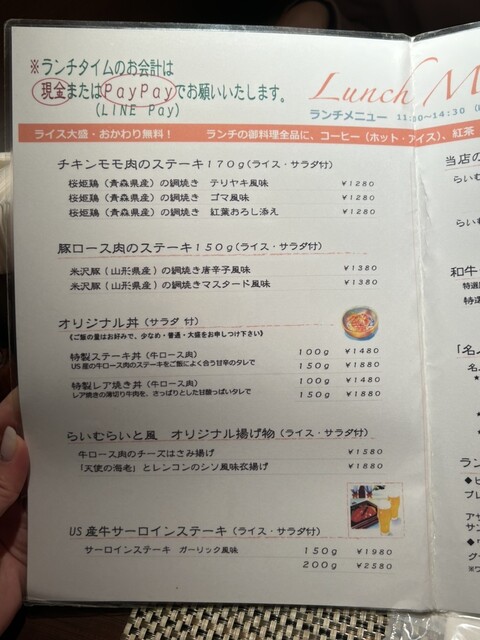 ※ランチタイムのお会計は
現金またはPayPayでお願いいたします。
(LINE Pay)
Lunch M
ランチメニュー 11:30～14:30
ライス大盛・おかわり無料！ ランチの御料理全品に、コーヒー（ホット・アイス）、紅茶
チキンモモ肉のステーキ170g(ライス・サラダ付)
桜姫鶏（青森県産）の網焼き テリヤキ風味 ¥1280
桜姫鶏（青森県産）の網焼き ゴマ風味 ¥1280
桜姫鶏（青森県産）の網焼き 紅葉おろし添え ¥1280
豚ロース肉のステーキ150g(ライス・サラダ付)
米沢豚（山形県産）の網焼き唐辛子風味 ¥1380
米沢豚（山形県産）の網焼きマスタード風味 ¥1380
オリジナル丼（サラダ 付）
《ご飯の量はお好みで、少なめ・普通・大盛をお申しつけ下さい》
特製ステーキ丼（牛ロース肉） 100g ¥1480
US産の牛ロース肉のステーキをご飯によく合う甘辛のタレで 150g ¥1880
特製レア焼き丼（牛ロース肉） 100g ¥1480
レア焼きの薄切り牛肉を、さっぱりとした甘酸っぱいタレで 150g ¥1880
らいむらいと風 オリジナル揚げ物（ライス・サラダ付）
牛ロース肉のチーズはさみ揚げ ¥1580
「天使の海老」とレンコンのシソ風味衣揚げ ¥1880
US産牛サーロインステーキ（ライス・サラダ付）
サーロインステーキ ガーリック風味 150g ¥1980
200g ¥2580
当店の
らいむ
らいむ
和牛
特選
特選
「名人
名
ラン
◆ビ
プレ
アサ
サン
グラ